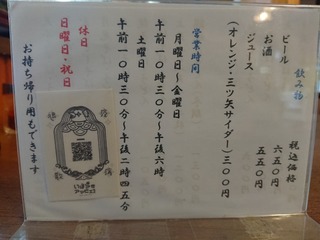 飲み物 税込価格
ビール 六五〇円
お酒 五五〇円
ジュース
(オレンジ・三ツ矢サイダー)三〇〇円
営業時間
月曜日～金曜日
午前一〇時三〇分～午後六時
土曜日
午前一〇時三〇分～午後二時四五分
休日
日曜日・祝日
お持ち帰り用もできます